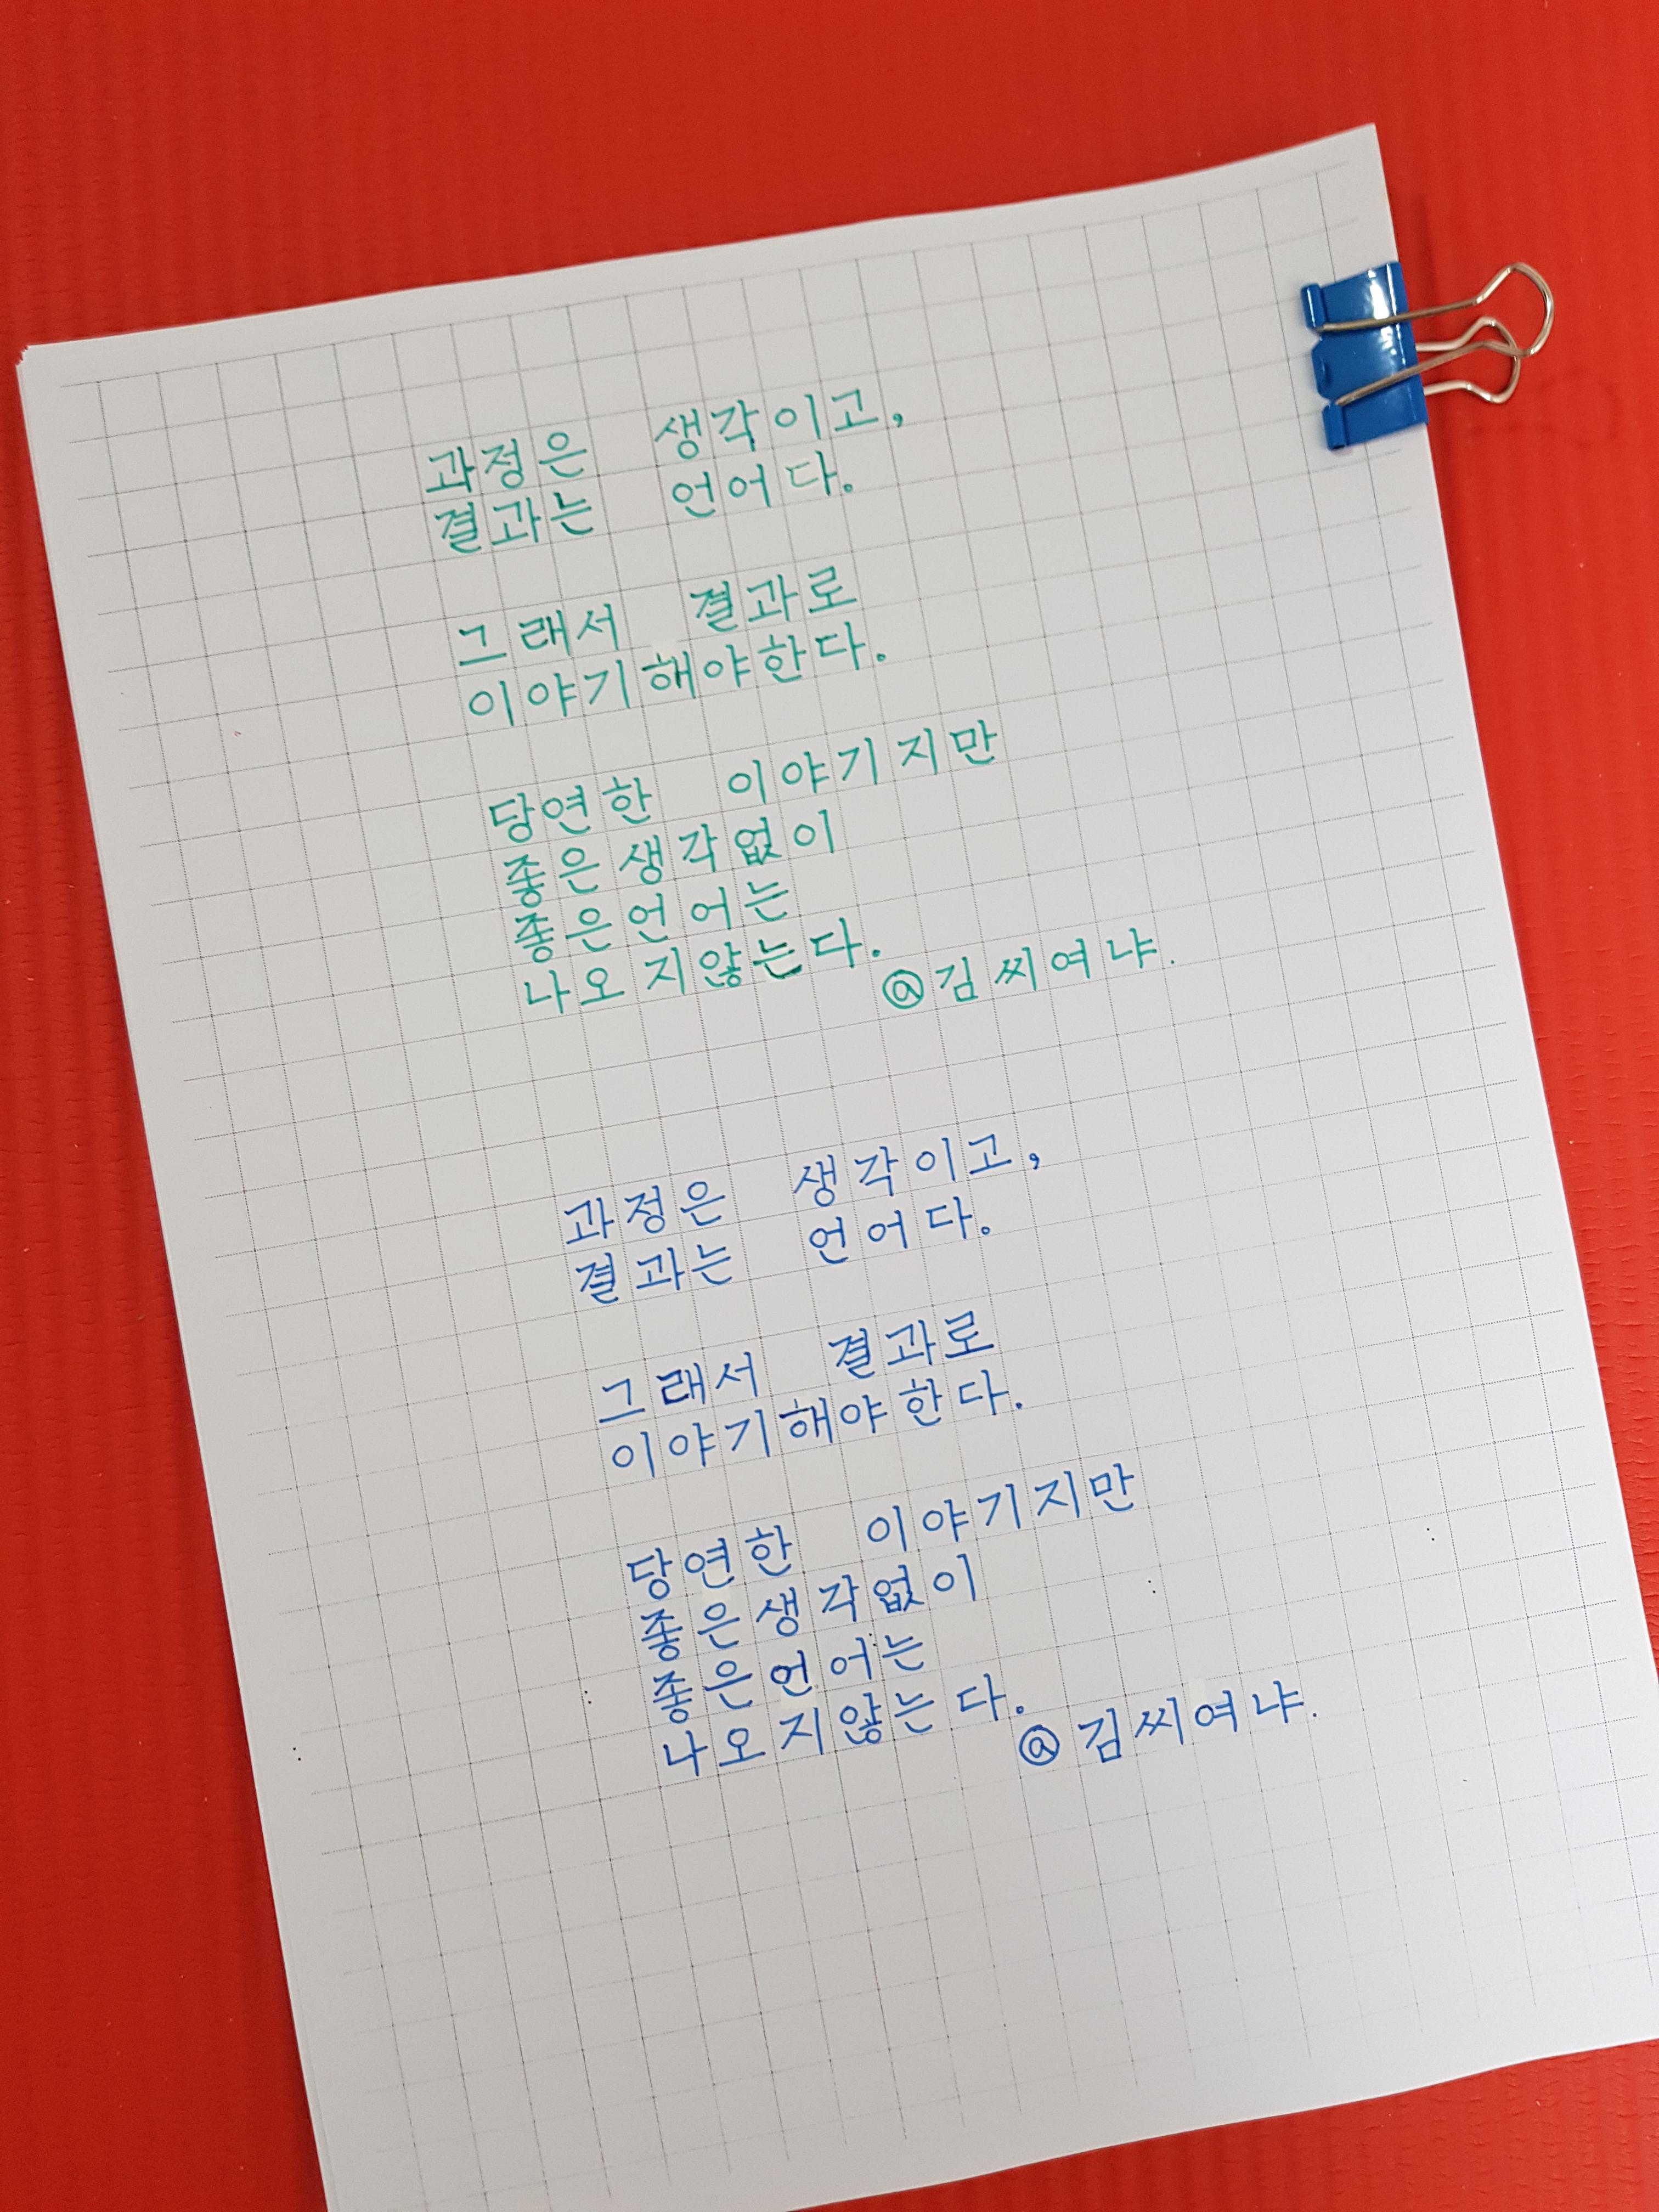 과정은 생각이고,
결과는 언어다.
그래서 결과로
이야기해야한다.
당연한 이야기지만
좋은생각없이
좋은언어는
나오지않는다.
@김씨여냐.
과정은 생각이고,
결과는 언어다.
그래서 결과로
이야기해야한다.
당연한 이야기지만
좋은생각없이
좋은언어는
나오지않는다.
@김씨여냐.